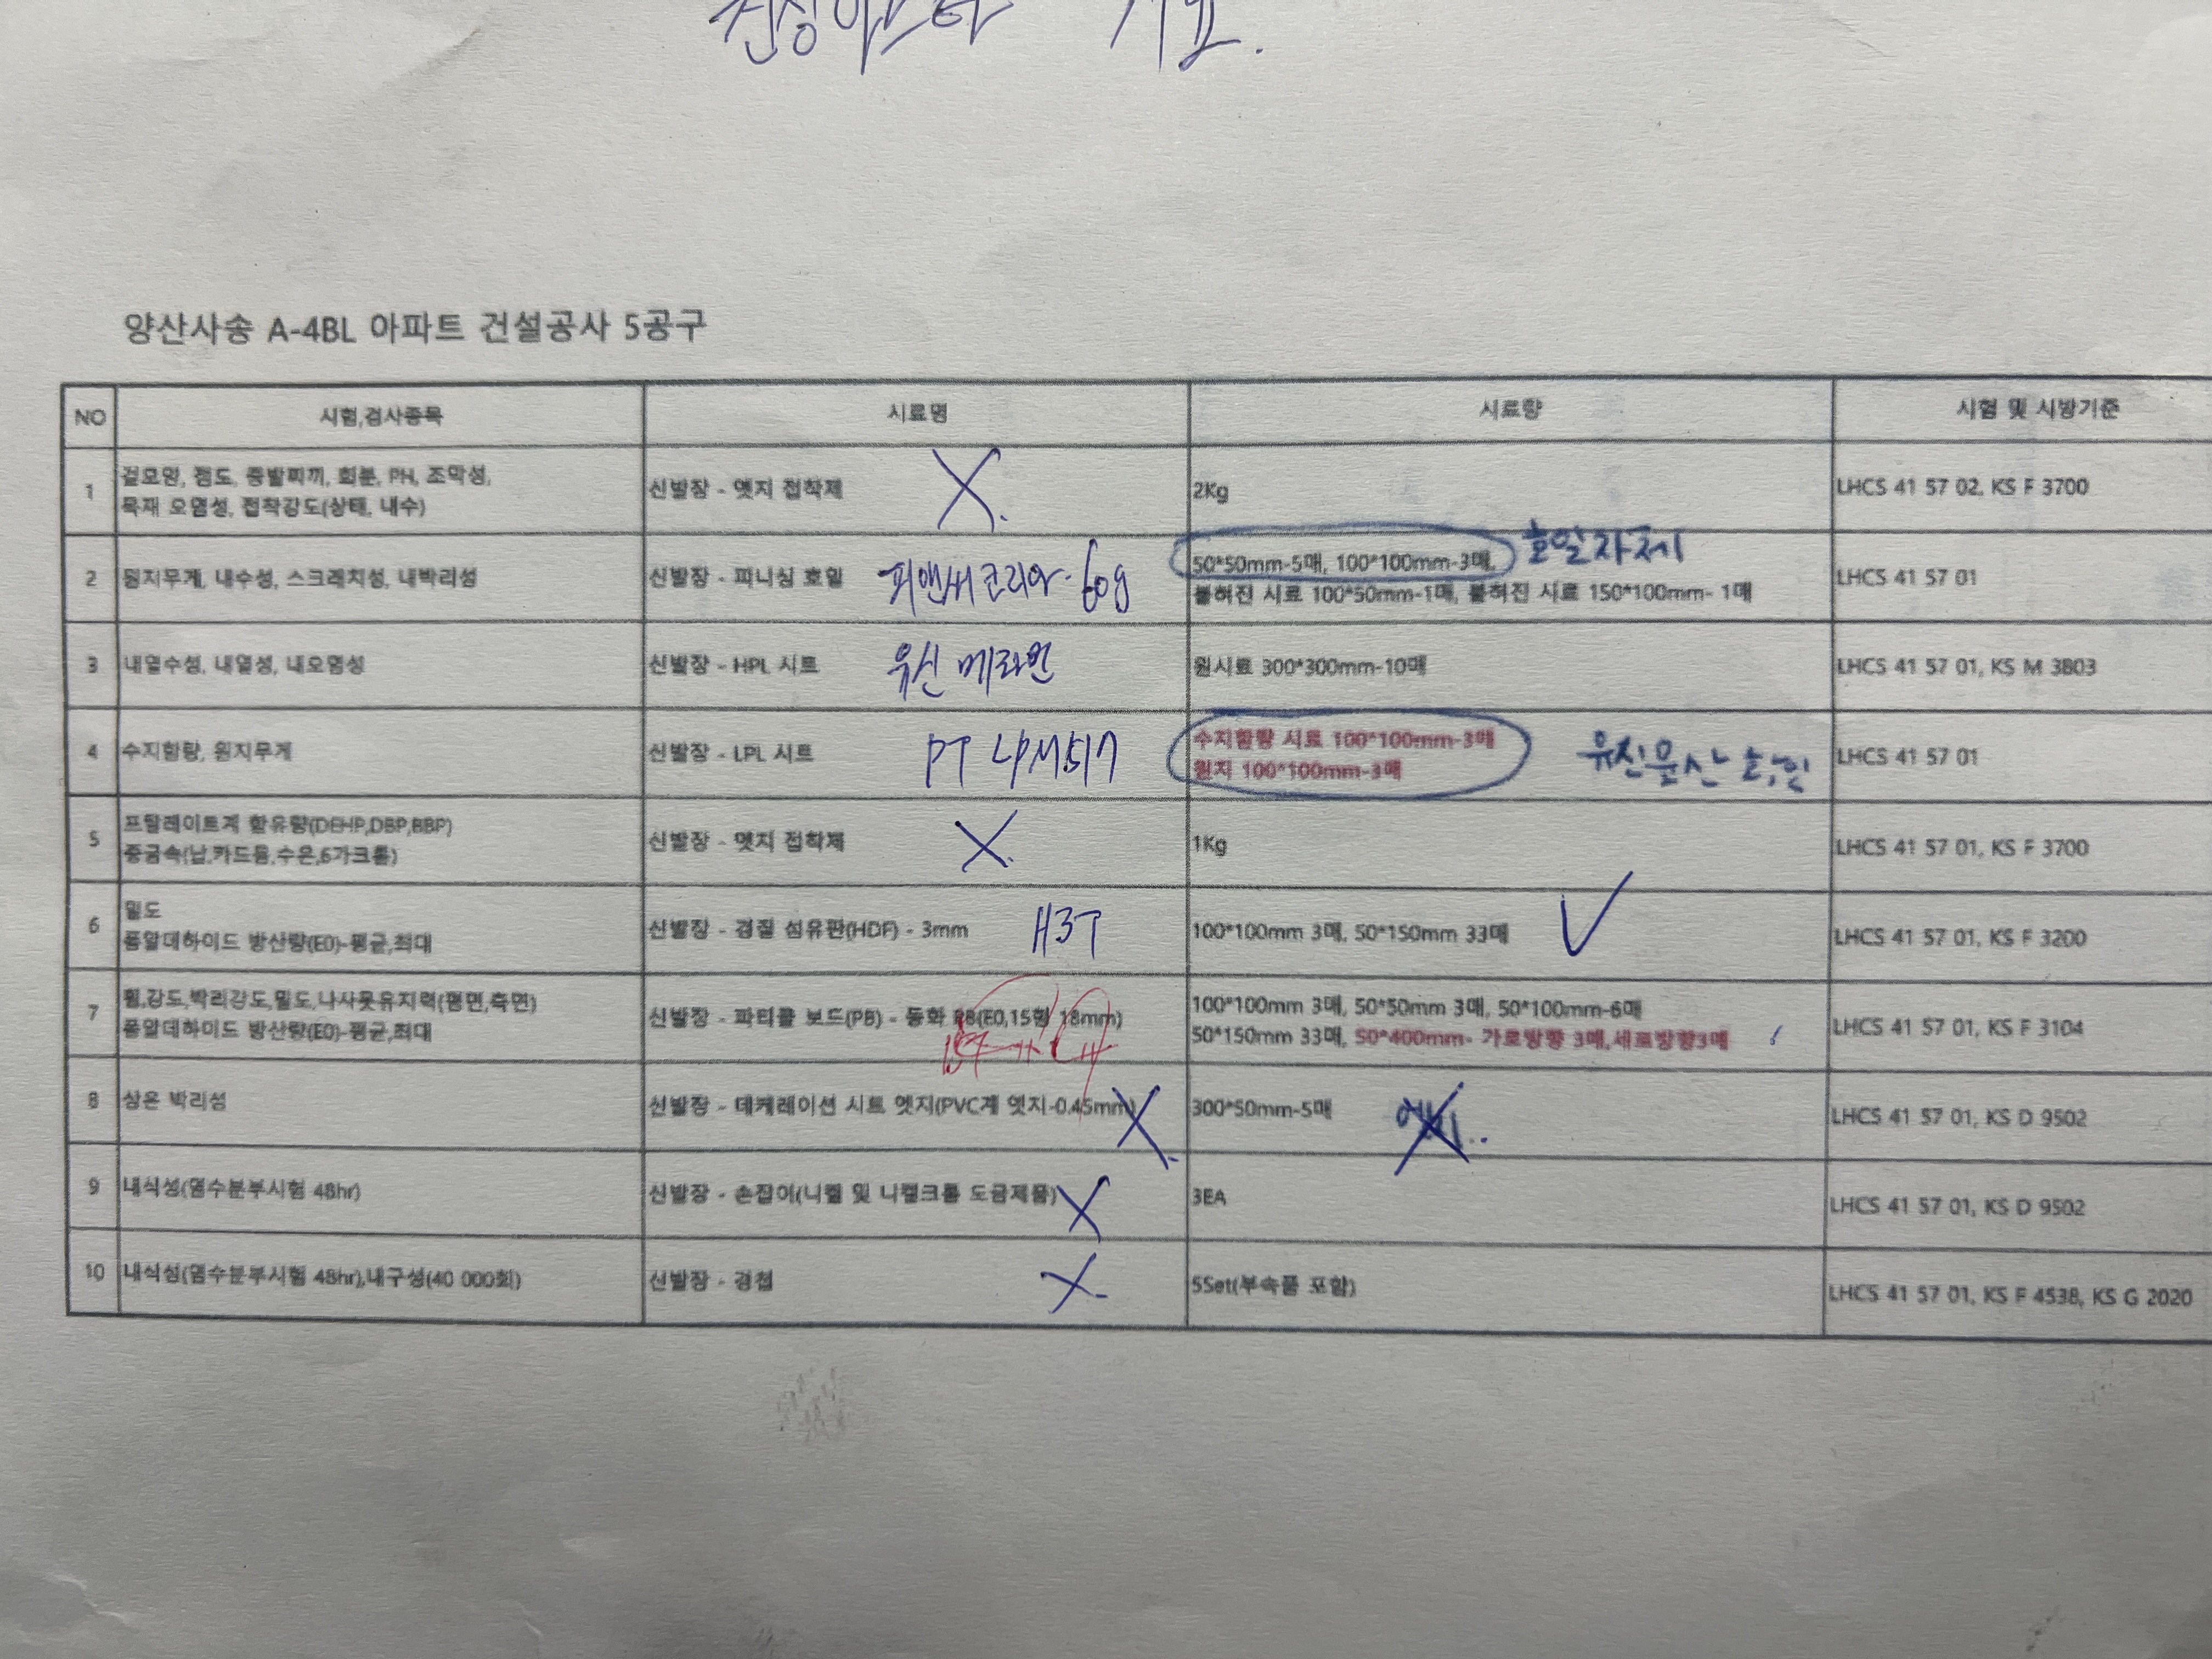 양산사송 A-4BL 아파트 건설공사 5공구
NO 시험,검사종목 시료명 시료량 시험 및 시방기준
1 겉모양, 점도, 증발찌꺼기, 회분, PH, 조막성, 신발장 - 엣지 접착제 X. 2Kg LHCS 41 57 02, KS F 3700
목재 오염성, 접착강도(상태, 내수)
2 원지무게, 내수성, 스크래치성, 내박리성 신발장 - 피니싱 호일 피앤씨코리아- 60g 50*50mm-5매, 100*100mm-3매, 호일자체 LHCS 41 57 01
붙혀진 시료 100*50mm-1매, 붙혀진 시료 150*100mm- 1매
3 내열수성, 내열성, 내오염성 신발장 - HPL 시트 유신 메라민 원시료 300*300mm-10매 LHCS 41 57 01, KS M 3803
4 수지함량, 원지무게 신발장 - LPL 시트 PT 수지함량 시료 100*100mm-3매 LHCS 41 57 01
원지 100*100mm-3매
5 프탈레이트계 함유량(DEHP,DBP,BBP) 신발장 - 엣지 접착제 X. 1Kg LHCS 41 57 01, KS F 3700
중금속(납,카드뮴,수은,6가크롬)
6 밀도 신발장 - 경질 섬유판(HDF) - 3mm H3T 100*100mm 3매, 50*150mm 33매 LHCS 41 57 01, KS F 3200
폼알데하이드 방산량(E0)-평균,최대
7 휨,강도,박리강도,밀도,나사못유지력(평면,측면) 신발장 - 파티클 보드(PB) - 동화 PB(E0,15형 18mm) 100*100mm 3매, 50*50mm 3매, 50*100mm-6매 LHCS 41 57 01, KS F 3104
폼알데하이드 방산량(E0)-평균,최대 50*150mm 33매, 50*400mm- 가로방향 3매,세로방향3매
8 상온 박리성 신발장 - 데케레이션 시트 엣지(PVC계 엣지-0.45mm) X. 300*50mm-5매 LHCS 41 57 01, KS D 9502
9 내식성(염수분부시험 48hr) 신발장 - 손잡이(니켈 및 니켈크롬 도금제품) X 3EA LHCS 41 57 01, KS D 9502
10 내식성(염수분부시험 48hr),내구성(40 000회) 신발장 - 경첩 X- 5Set(부속품 포함) LHCS 41 57 01, KS F 4538, KS G 2020